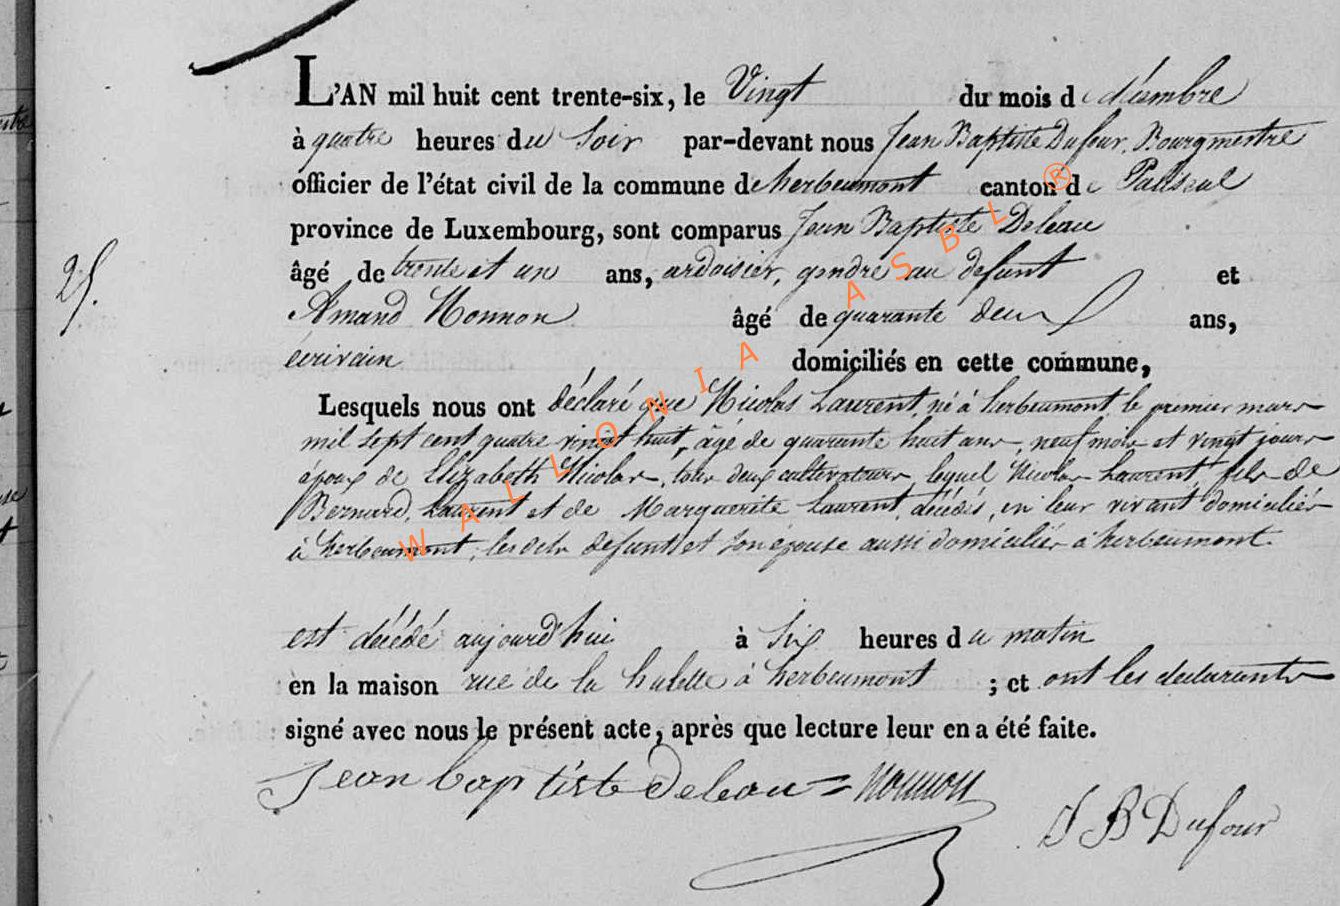 L'AN mil huit cent trente-six, le Vingt du mois de décembre
à quatre heures du Soir par-devant nous Jean Baptiste Dufour, Bourgmestre
officier de l'état civil de la commune de herbeumont canton de Paliseul
province de Luxembourg, sont comparus Jean Baptiste Deleau
âgé de trente et un ans, ardoisier, gendre au defunt et
25.
Amand Monnon âgé de quarante deux ans,
écrivain domiciliés en cette commune,
Lesquels nous ont déclaré que Nicolas Laurent, né à herbeumont le premier mars
mil sept cent quatre vingt huit, âgé de quarante huit ans, neuf mois et vingt jours
époux de Elizabeth Nicolas, tous deux cultivateurs, lequel Nicolas Laurent, fils de
Bernard Laurent et de Marguerite Laurent, décédés, en leur vivant domiciliés
à herbeumont, les dits defunt et son épouse aussi domiciliés à herbeumont.
est décédé aujourd'hui à Six heures du matin
en la maison rue de la hulette à herbeumont ; et ont les declarants
signé avec nous le présent acte, après que lecture leur en a été faite.
Jean baptiste Deleau = Monnon
J B Dufour
WALLONIA ASBL ®